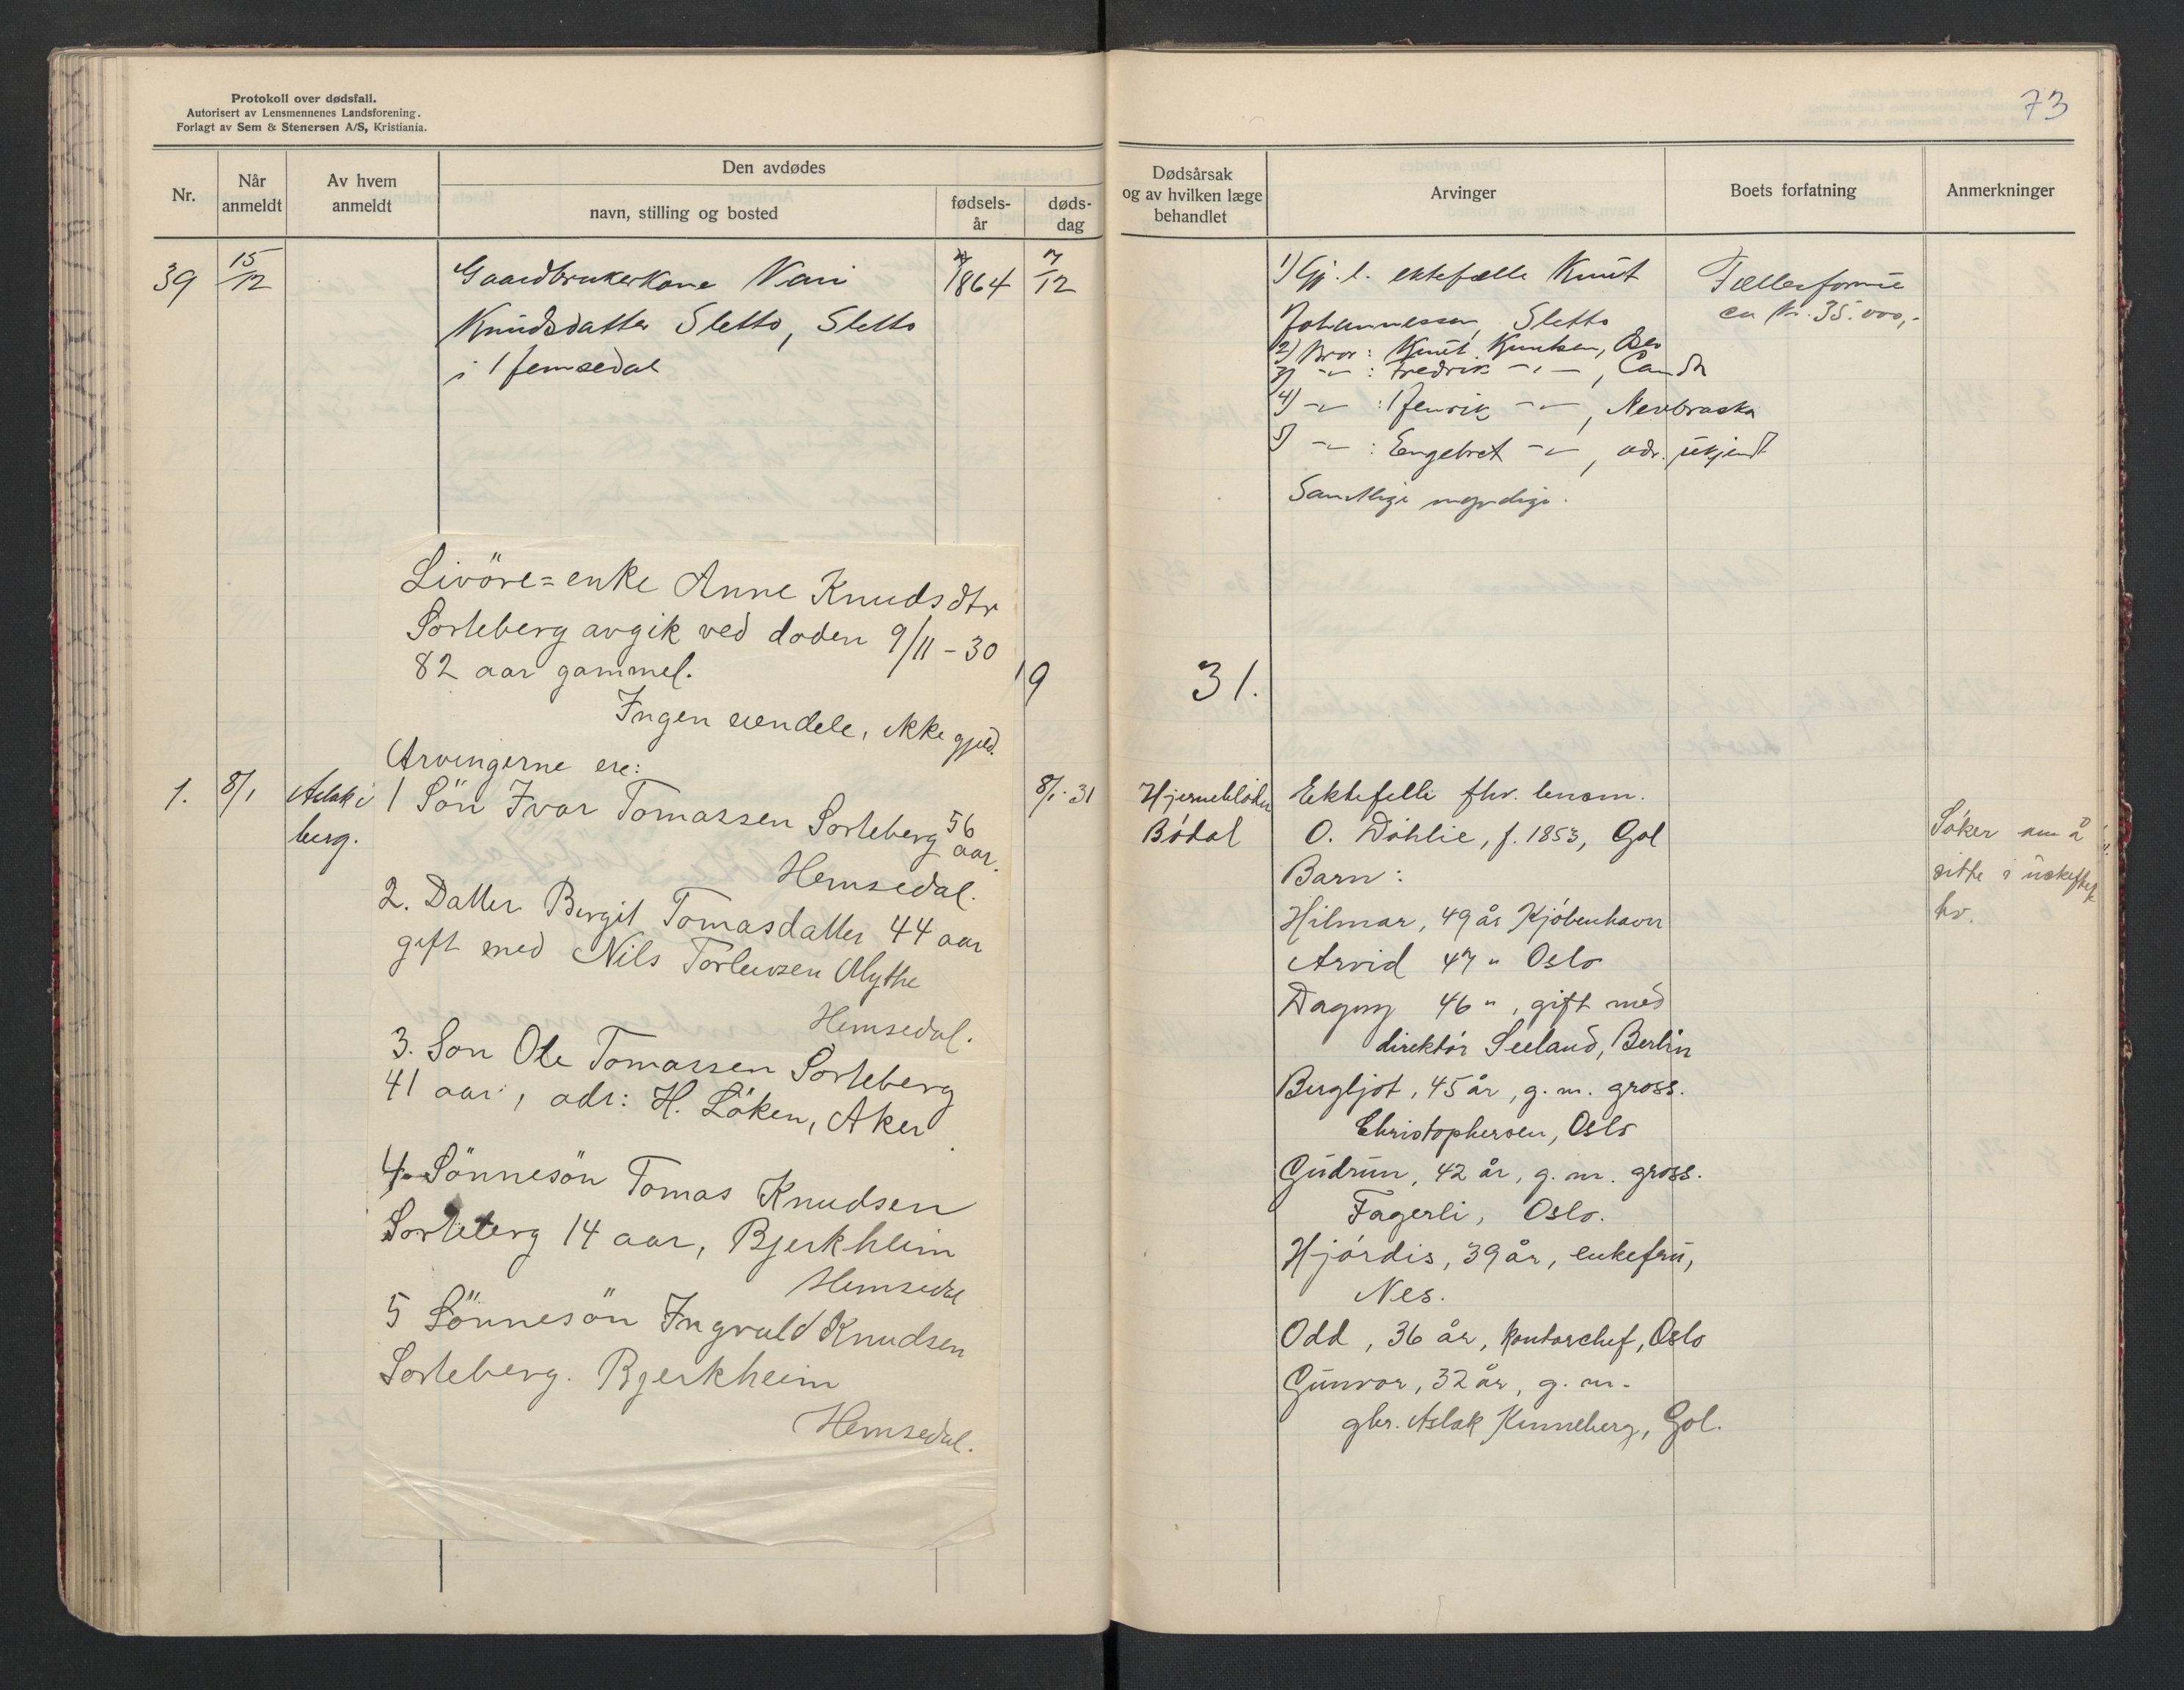 Protokoll over dødsfall.
Autorisert av Lensmennenes Landsforening.
Forlagt av Sem & Stenersen A/S, Kristiania.
73
Nr.
Når anmeldt
Av hvem anmeldt
Den avdødes
navn, stilling og bosted
fødsels-år
døds-dag
Dødsårsak og av hvilken læge behandlet
Arvinger
Boets forfatning
Anmerkninger
39
15/12
Gaardbrukerkone Kari
Knudsdatter Sletto, Sletto
i Hemsedal
1864
7/12
1) Gj. l. ektefælle Knut
Johannessen Sletto
2) Bror: Knut Knutsen, Oslo
3) -"- : Fredrik -"-,
4) -"- : Henrik -"-, Nevbraska
5) -"- : Engebret -"-, adr. ukjendt
Samtlige myndige.
Fællesformue
ca kr. 35.000,-
Livöre=enke Anne Knudsdtr
Sorteberg avgik ved doden 9/11-30
82 aar gammel.
Ingen uendele, ikke gjeld.
Arvingerne ere:
1 Sön Ivar Tomassen Sorteberg 56 aar.
Hemsedal.
2. Datter Bergit Tomasdatter 44 aar
gift med Nils Torleivsen Ulythe
Hemsedal.
3. Son Ole Tomassen Sorteberg
41 aar, adr: H. Löken, Aker
4. Sönnesön Tomas Knudsen
Sorteberg 14 aar, Bjerkheim
Hemsedal
5 Sönnesön Ingvald Knudsen
Sorteberg. Bjerkheim
Hemsedal.
19
31.
1.
8/1
Aslak
berg.
8/1-31
Hjerneblødn
Bødal
Ektefelle fhv. lensm.
O. Døhlie, f. 1853, Gol
Barn:
Hilmar, 49 år Kjøbenhavn
Arvid 47 " Oslo
Dagny 46 ", gift med
direktør Seeland, Berlin
Bergljot, 45 år, g. m. gross.
Christophersen, Oslo
Gudrun, 42 år, g. m. gross.
Fagerli, Oslo.
Hjørdis, 39 år, enkefru,
Nes.
Odd, 36 år, kontorchef, Oslo
Gunvor, 32 år, g. m.
gbr. Aslak Kinneberg, Gol.
Søker om å
sitte i uskiftet
bo.